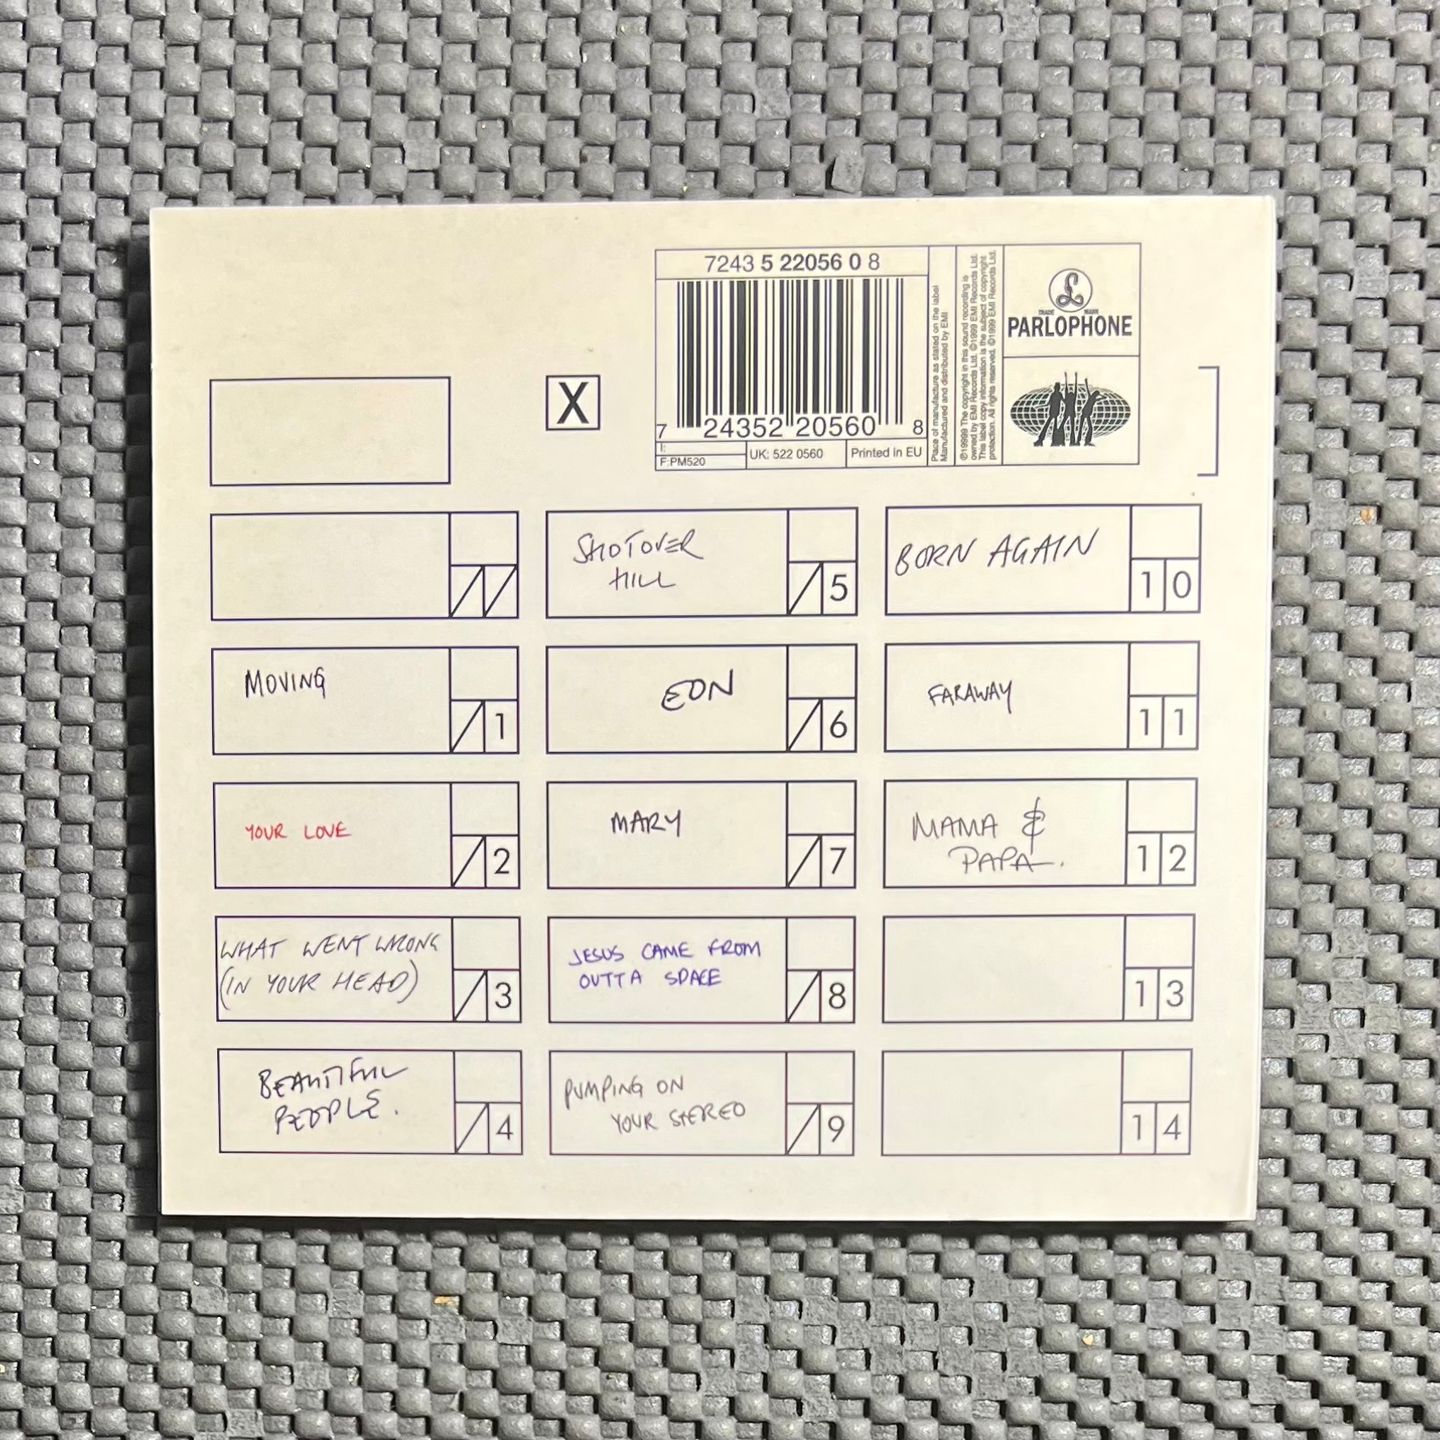 7243 5 22056 0 8
7 24352 20560 8
I:
F:PM520
UK: 522 0560
Printed in EU
Place of manufacture as stated on the label
Manufactured and distributed by EMI
℗19999 The copyright in this sound recording is
owned by EMI Records Ltd. ©1999 EMI Records Ltd.
This label copy information is the subject of copyright
protection. All rights reserved. ©1999 EMI Records Ltd.
£
TRADE MARK
PARLOPHONE
X
MOVING
1
YOUR LOVE
2
WHAT WENT WRONG
(IN YOUR HEAD)
3
BEAUTIFUL
PEOPLE.
4
SHOTOVER
HILL
5
EON
6
MARY
7
JESUS CAME FROM
OUTTA SPACE
8
PUMPING ON
YOUR STEREO
9
BORN AGAIN
10
FARAWAY
11
MAMA &
PAPA.
12
13
14